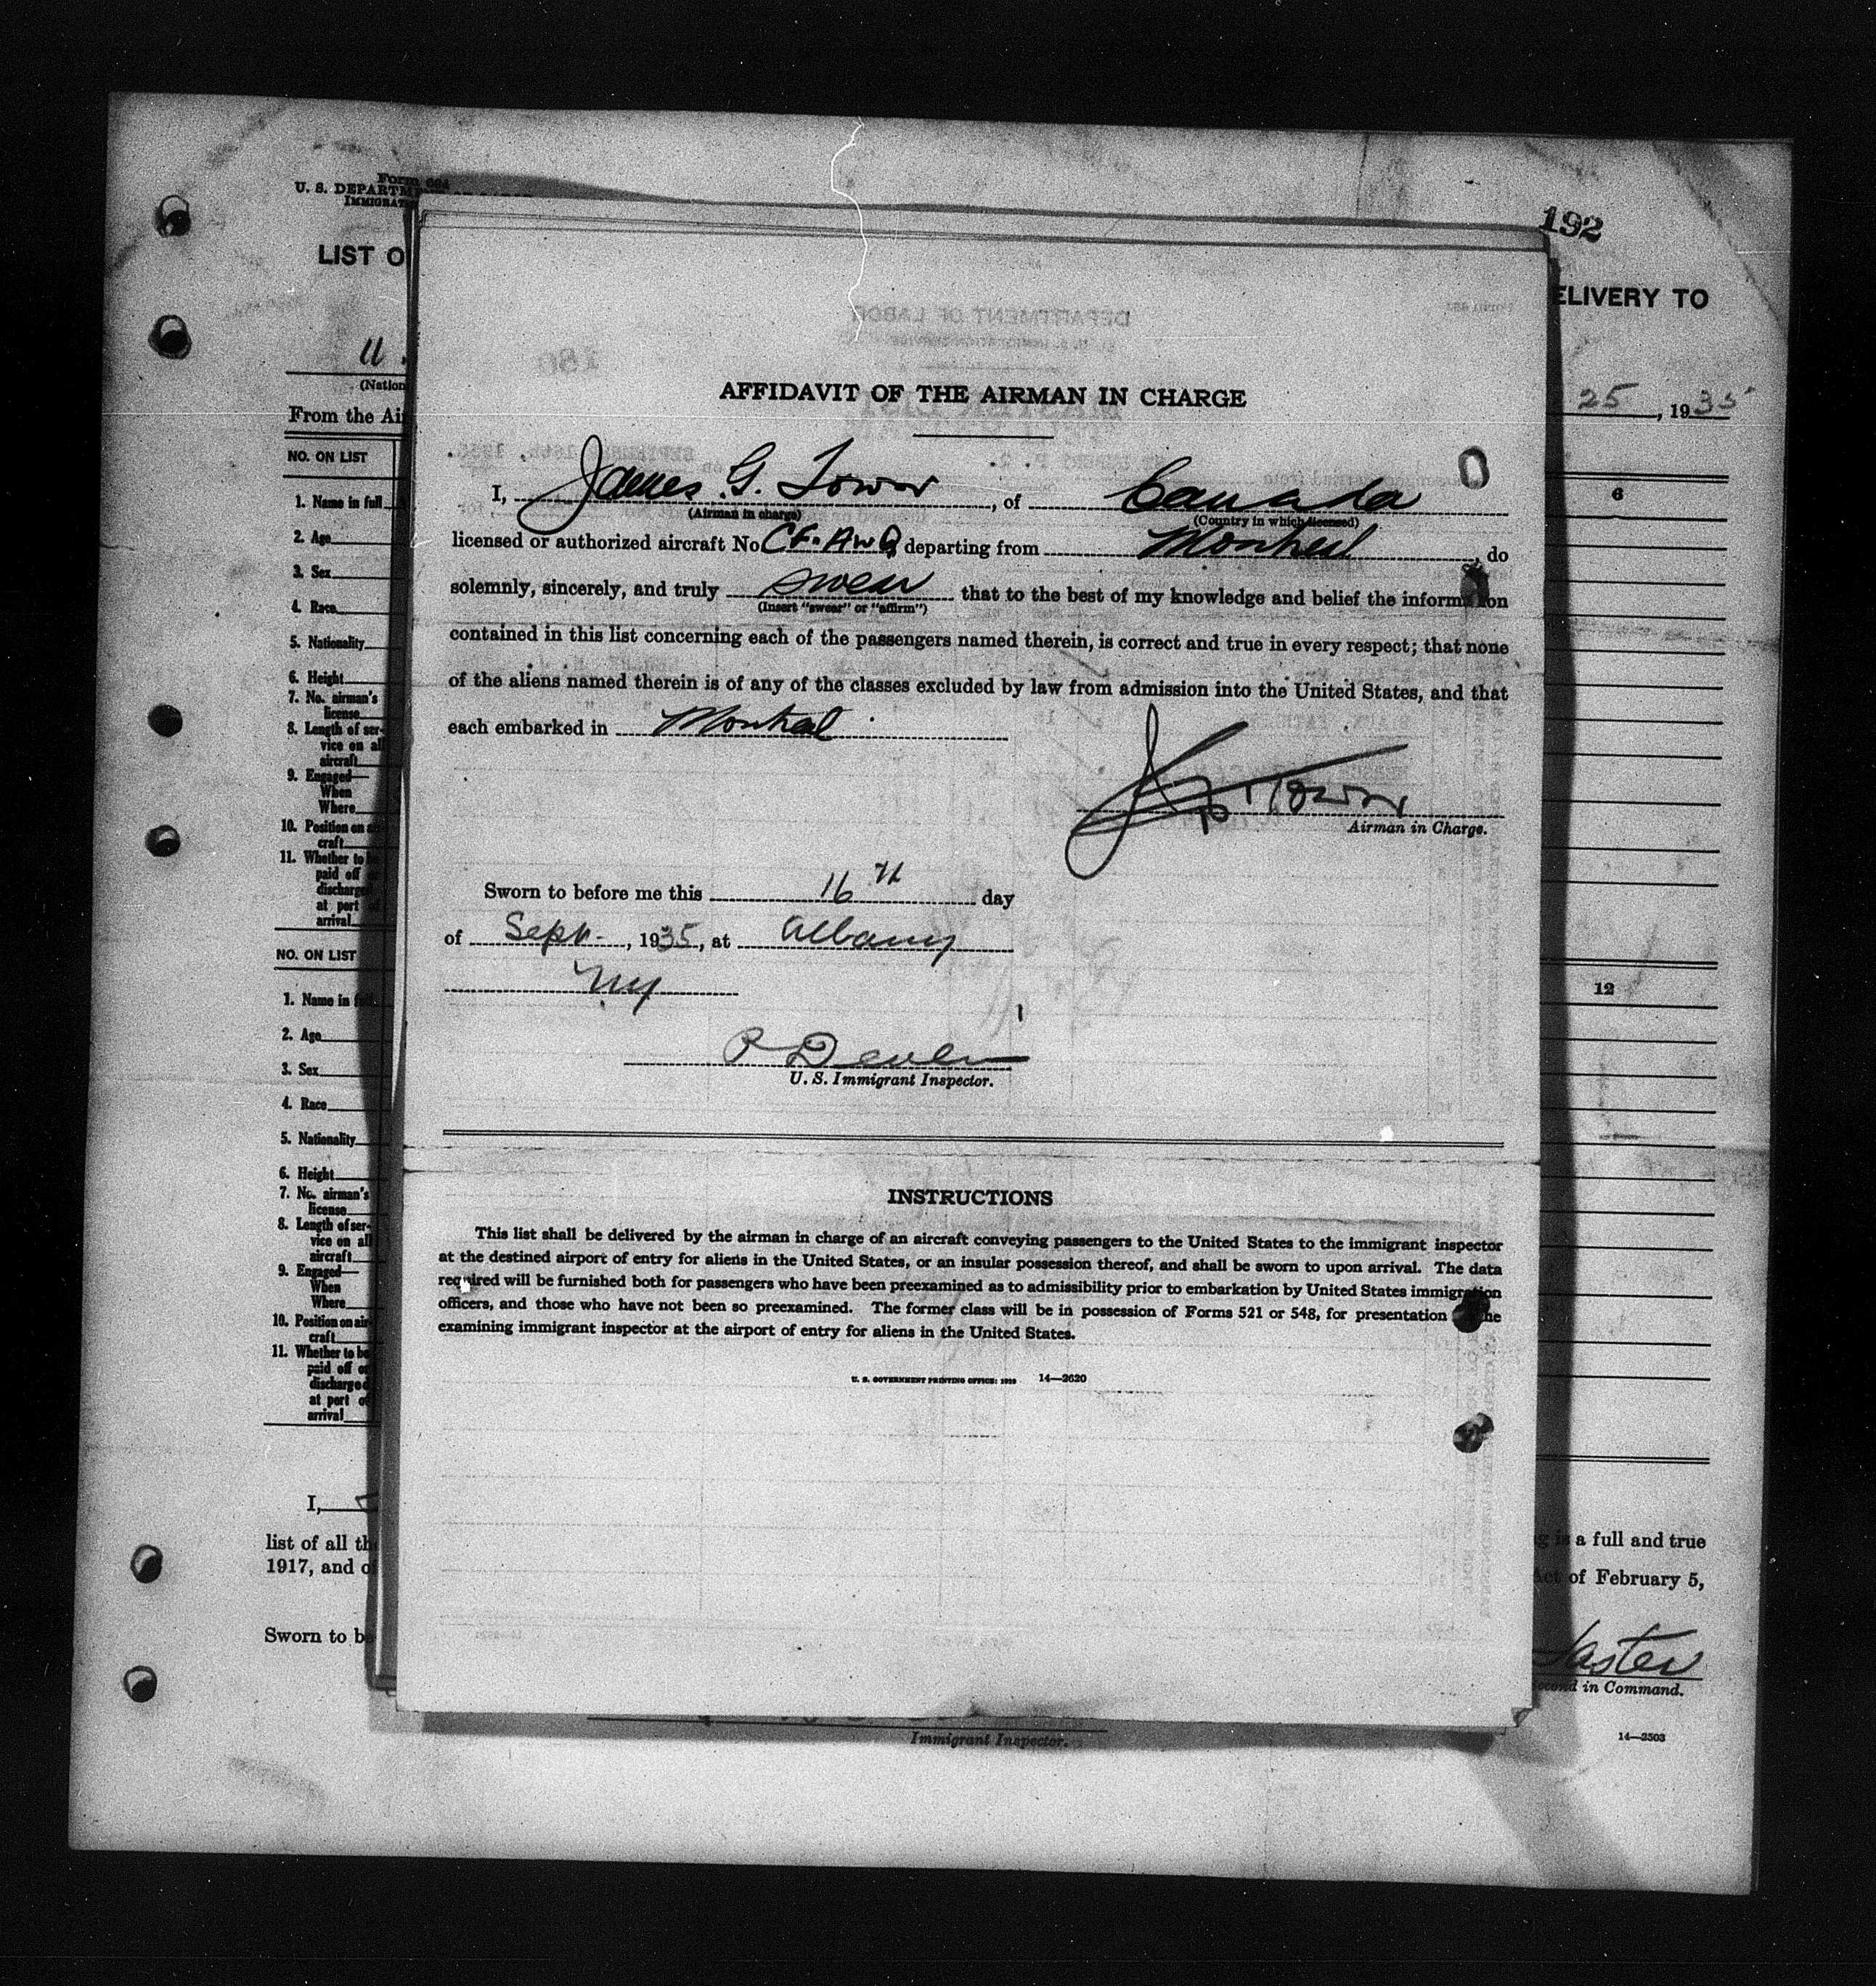 Form
U. S. DEPARTM
IMMIGRAT
LIST O
192
ELIVERY TO
U.
(Nation
From the Ai
25, 1935
NO. ON LIST
6
1. Name in full
2. Age
3. Sex
4. Race
5. Nationality
6. Height
7. No. airman's
license
8. Length of ser-
vice on all
aircraft
9. Engaged—
When
Where
10. Position on air-
craft
11. Whether to be
paid off or
discharged
at port of
arrival
NO. ON LIST
12
1. Name in full
2. Age
3. Sex
4. Race
5. Nationality
6. Height
7. No. airman's
license
8. Length of ser-
vice on all
aircraft
9. Engaged—
When
Where
10. Position on air-
craft
11. Whether to be
paid off or
discharged
at port of
arrival
I,
list of all th
1917, and of
Sworn to be
is a full and true
Act of February 5,
econd in Command.
14—2503
Immigrant Inspector.
AFFIDAVIT OF THE AIRMAN IN CHARGE
I, James G. Towor, of Canada
(Airman in charge) (Country in which licensed)
licensed or authorized aircraft No CF.AWQ departing from Montreal, do
solemnly, sincerely, and truly swear that to the best of my knowledge and belief the information
(Insert "swear" or "affirm")
contained in this list concerning each of the passengers named therein, is correct and true in every respect; that none
of the aliens named therein is of any of the classes excluded by law from admission into the United States, and that
each embarked in Montreal
Airman in Charge.
Sworn to before me this 16th day
of Sept., 1935, at Albany
NY
P Devlin
U. S. Immigrant Inspector.
INSTRUCTIONS
This list shall be delivered by the airman in charge of an aircraft conveying passengers to the United States to the immigrant inspector
at the destined airport of entry for aliens in the United States, or an insular possession thereof, and shall be sworn to upon arrival. The data
required will be furnished both for passengers who have been preexamined as to admissibility prior to embarkation by United States immigration
officers, and those who have not been so preexamined. The former class will be in possession of Forms 521 or 548, for presentation the
examining immigrant inspector at the airport of entry for aliens in the United States.
U. S. GOVERNMENT PRINTING OFFICE: 1929 14—2620